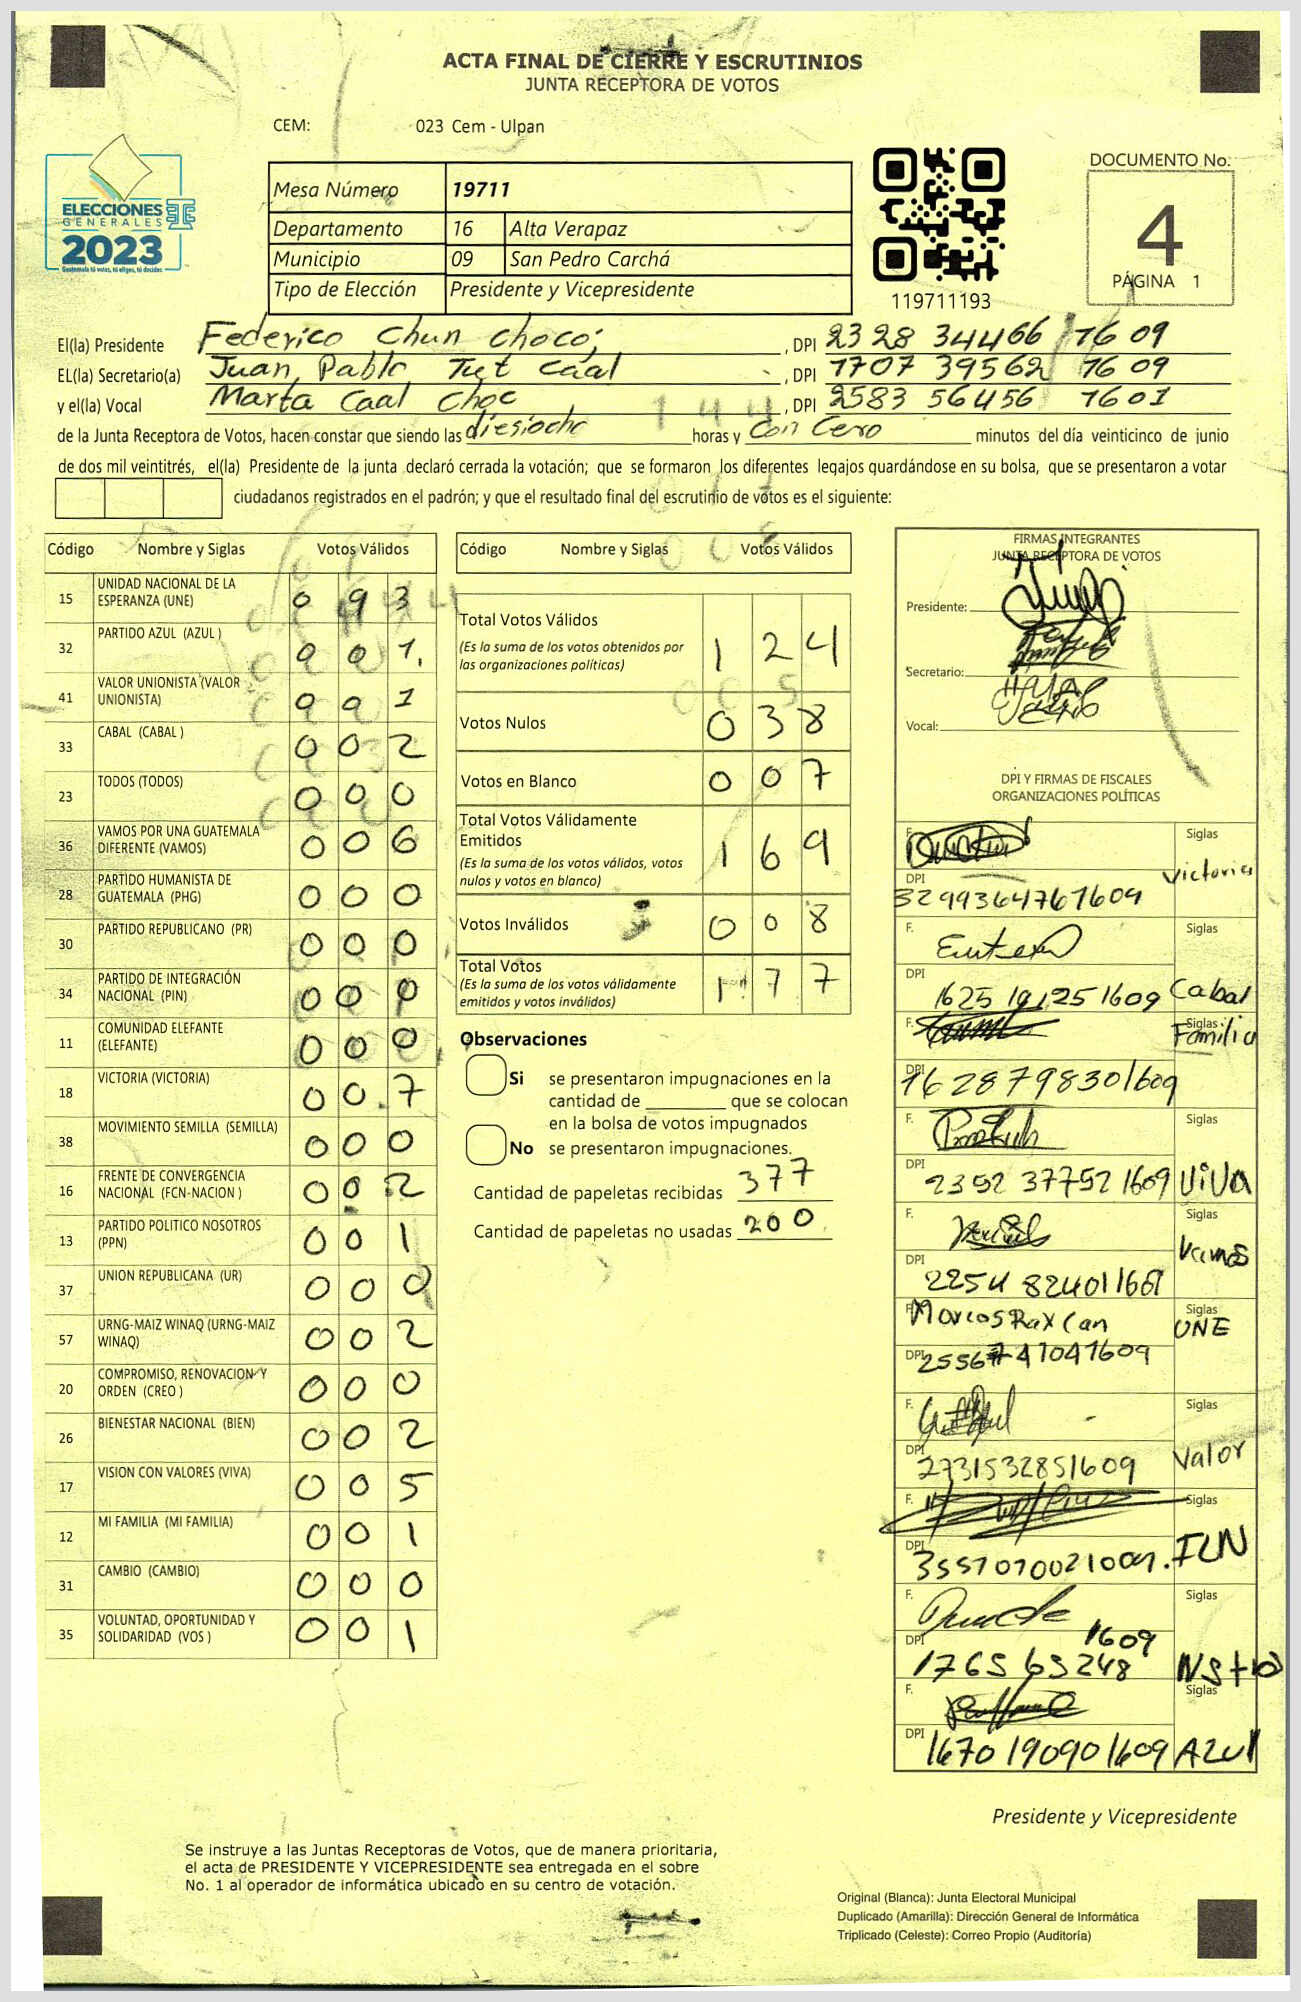 ACTA FINAL DE CIERRE Y ESCRUTINIOS
JUNTA RECEPTORA DE VOTOS
CEM: 023 Cem - Ulpan
ELECCIONES
GENERALES
2023
Guatemala tú votas, tú eliges, tú decides
Mesa Número 19711
Departamento 16 Alta Verapaz
Municipio 09 San Pedro Carchá
Tipo de Elección Presidente y Vicepresidente
119711193
DOCUMENTO No.
4
PÁGINA 1
El(la) Presidente Federico Chun Choco; , DPI 2328 34466 1609
EL(la) Secretario(a) Juan Pablo Tut Caal , DPI 1707 39562 1609
y el(la) Vocal Marta Caal Choc , DPI 2583 56456 1601
de la Junta Receptora de Votos, hacen constar que siendo las diesiocho horas y Con Cero minutos del día veinticinco de junio
de dos mil veintitrés, el(la) Presidente de la junta declaró cerrada la votación; que se formaron los diferentes legajos guardándose en su bolsa, que se presentaron a votar
ciudadanos registrados en el padrón; y que el resultado final del escrutinio de votos es el siguiente:
Código Nombre y Siglas Votos Válidos
15 UNIDAD NACIONAL DE LA ESPERANZA (UNE) 0 9 3
32 PARTIDO AZUL (AZUL ) 0 0 1
41 VALOR UNIONISTA (VALOR UNIONISTA) 0 0 1
33 CABAL (CABAL ) 0 0 2
23 TODOS (TODOS) 0 0 0
36 VAMOS POR UNA GUATEMALA DIFERENTE (VAMOS) 0 0 6
28 PARTIDO HUMANISTA DE GUATEMALA (PHG) 0 0 0
30 PARTIDO REPUBLICANO (PR) 0 0 0
34 PARTIDO DE INTEGRACIÓN NACIONAL (PIN) 0 0 0
11 COMUNIDAD ELEFANTE (ELEFANTE) 0 0 0
18 VICTORIA (VICTORIA) 0 0 7
38 MOVIMIENTO SEMILLA (SEMILLA) 0 0 0
16 FRENTE DE CONVERGENCIA NACIONAL (FCN-NACION ) 0 0 2
13 PARTIDO POLITICO NOSOTROS (PPN) 0 0 1
37 UNION REPUBLICANA (UR) 0 0 0
57 URNG-MAIZ WINAQ (URNG-MAIZ WINAQ) 0 0 2
20 COMPROMISO, RENOVACION Y ORDEN (CREO ) 0 0 0
26 BIENESTAR NACIONAL (BIEN) 0 0 2
17 VISION CON VALORES (VIVA) 0 0 5
12 MI FAMILIA (MI FAMILIA) 0 0 1
31 CAMBIO (CAMBIO) 0 0 0
35 VOLUNTAD, OPORTUNIDAD Y SOLIDARIDAD (VOS ) 0 0 1
Código Nombre y Siglas Votos Válidos
Total Votos Válidos 1 2 4
(Es la suma de los votos obtenidos por
las organizaciones políticas)
Votos Nulos 0 3 8
Votos en Blanco 0 0 7
Total Votos Válidamente
Emitidos 1 6 9
(Es la suma de los votos válidos, votos
nulos y votos en blanco)
Votos Inválidos 0 0 8
Total Votos 1 7 7
(Es la suma de los votos válidamente
emitidos y votos inválidos)
Observaciones
Si se presentaron impugnaciones en la
cantidad de ________ que se colocan
en la bolsa de votos impugnados
No se presentaron impugnaciones.
Cantidad de papeletas recibidas 377
Cantidad de papeletas no usadas 200
FIRMAS INTEGRANTES
JUNTA RECEPTORA DE VOTOS
Presidente:
Secretario:
Vocal:
DPI Y FIRMAS DE FISCALES
ORGANIZACIONES POLÍTICAS
F. Siglas Victoria
DPI 3299364761609
F. Siglas Cabal
DPI 1625 191251609
F. Siglas Familia
DPI 1628798301609
F. Siglas
DPI 2352 377521609 UiVa
F. Siglas Vamos
DPI
F. Marcos Rax Can Siglas UNE
DPI
F. Siglas Valor
DPI 2731532851609
F. Siglas
DPI
F. Siglas
DPI 1765 65248 1609
F. Siglas
DPI 1670190901609 AZUl
Presidente y Vicepresidente
Se instruye a las Juntas Receptoras de Votos, que de manera prioritaria,
el acta de PRESIDENTE Y VICEPRESIDENTE sea entregada en el sobre
No. 1 al operador de informática ubicado en su centro de votación.
Original (Blanca): Junta Electoral Municipal
Duplicado (Amarilla): Dirección General de Informática
Triplicado (Celeste): Correo Propio (Auditoría)